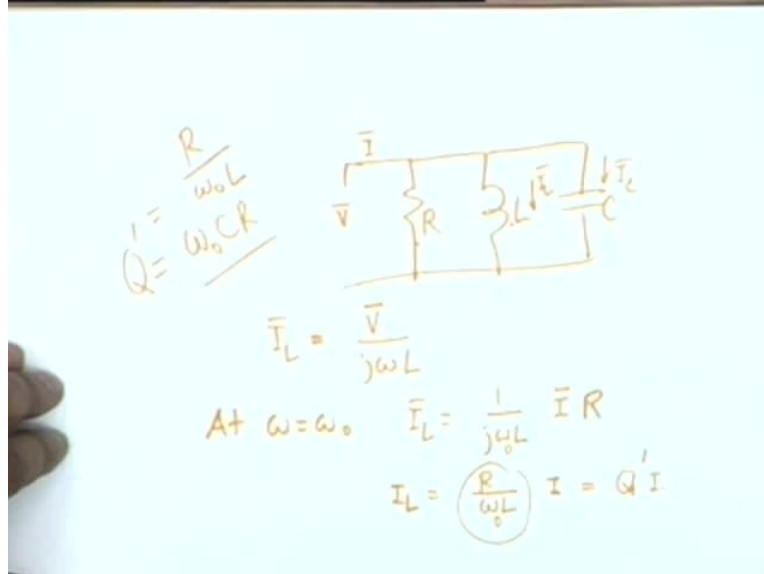 R / ω₀L
Q' = = ω₀CR
Ī
V̄ R L Ī_L C Ī_C
Ī_L = V̄ / jωL
At ω=ω₀ Ī_L = 1 / jω₀L Ī R
I_L = R / ω₀L I = Q' I